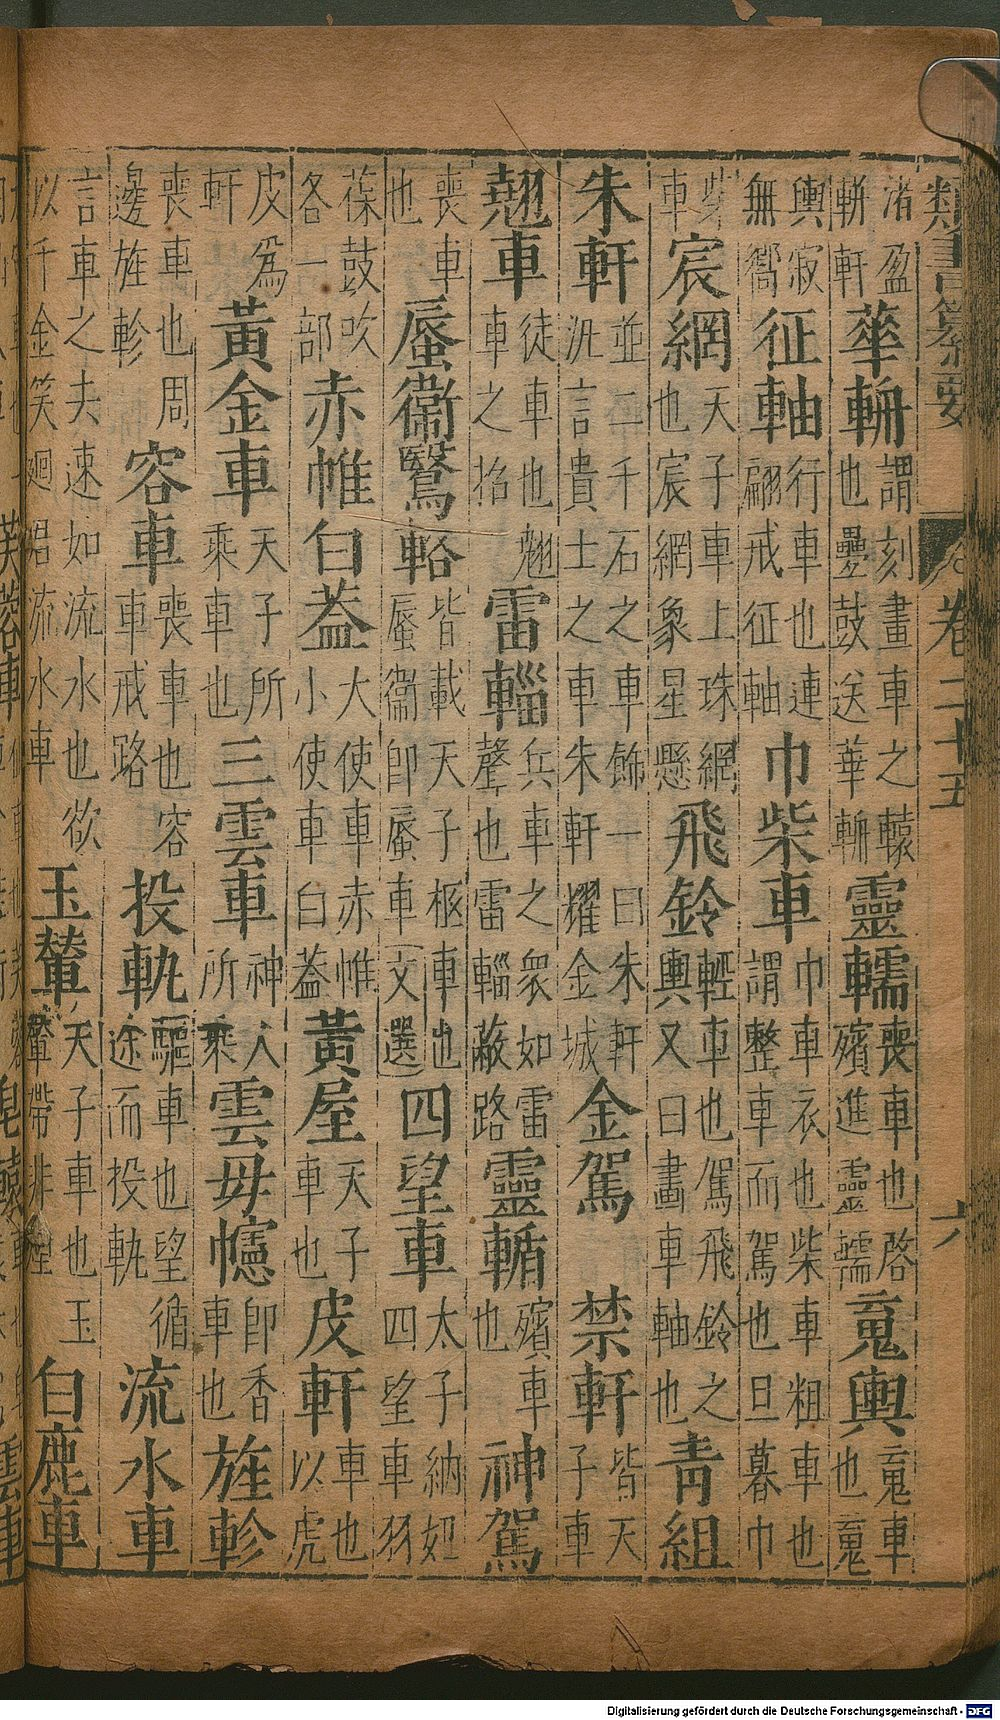 類書纂要 卷二十五 六
渚盈軿軒 華輧 謂刻畫車之轅也疊鼓送華輧 靈轜 喪車也啓殯進靈轜 䰟輿 䰟車也䰟
輿寂無嚮 征軸 行車也連翩戒征軸 巾柴車 巾車衣也柴車粗車也謂整車而駕也旦暮巾
柴車 宸網 天子車上珠網也宸網象星懸 飛鈴 輕車也駕飛鈴之輿又曰畫車軸也 青組
朱軒 並二千石之車飾一曰朱軒汎言貴士之車朱軒耀金城 金駕 禁軒 皆天子車
翹車 徒車也翹車之招 雷輜 兵車之衆如雷聲也雷輜蔽路 靈輴 殯車也 神駕
喪車也 蜃衞鷖輅 皆載天子柩車也蜃衞卽蜃車文選 四望車 太子納妃四望車羽
葆鼓吹各一部 赤帷白葢 大使車赤帷小使車白葢 黃屋 天子車也 皮軒 車也以虎
皮爲軒 黃金車 天子所乘車也 三雲車 神人所乘 雲毋幰 卽香車也 旌軫
喪車也周邊旌軫 容車 喪車也容車戒路 投軌 驅車也望循途而投軌 流水車
言車之夫速如流水也欲以千金笑廻君流水車 玉輦 天子車也玉輦帶非煙 白鹿車
Digitalisierung gefördert durch die Deutsche Forschungsgemeinschaft - DFG